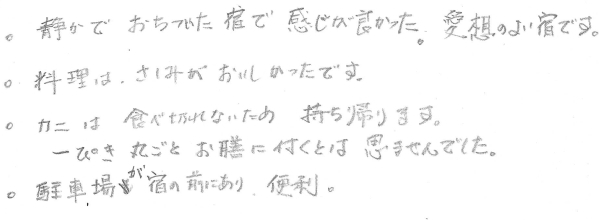 。静かで おちついた 宿で 感じが良かった。愛想のよい宿です。
。料理は、さしみが おいしかったです。
。カニは 食べ切れないため 持ち帰ります。
一ぴき 丸ごと お膳に付くとは 思ませんでした。
。駐車場が宿の前にあり、便利。